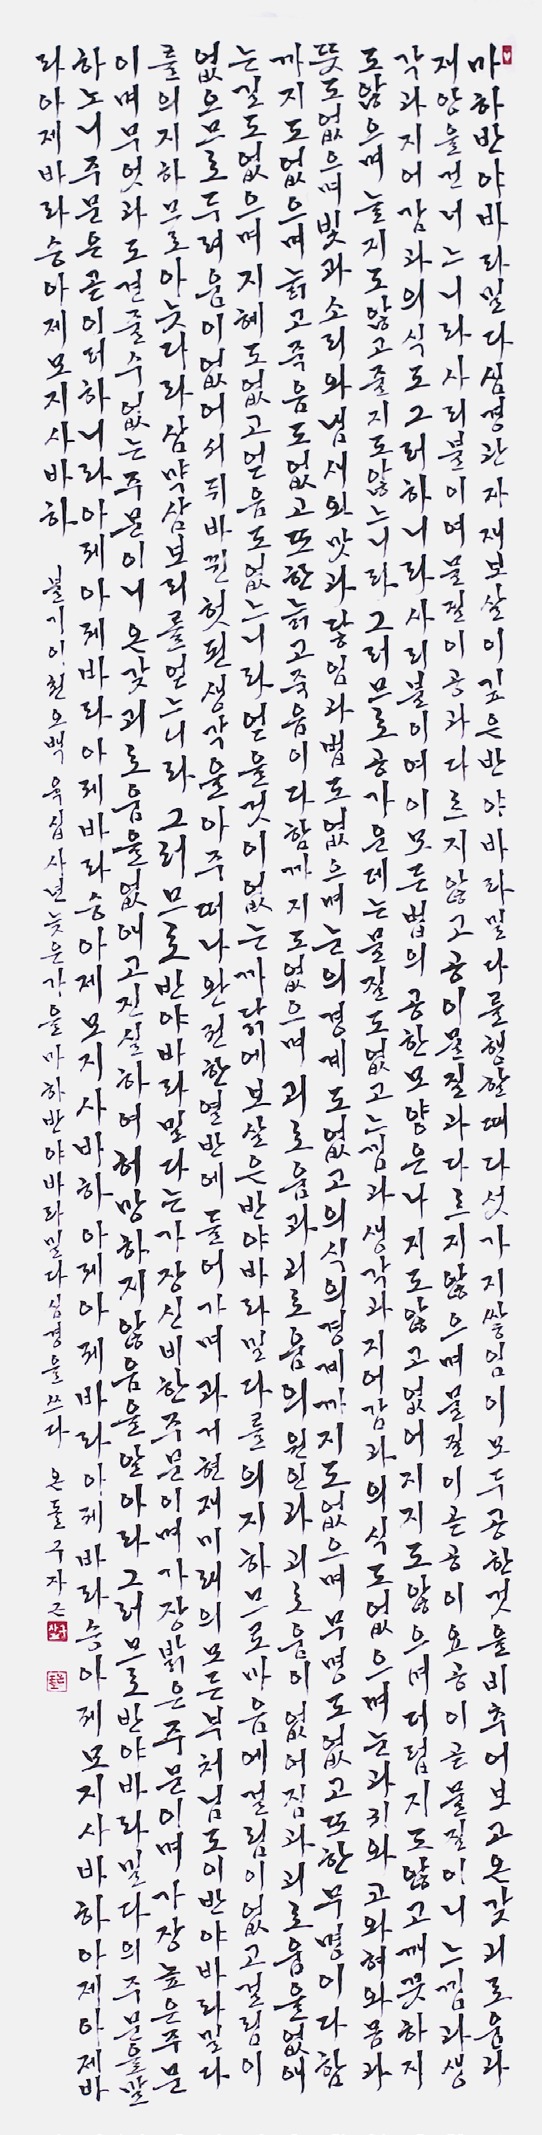 마하반야바라밀다심경관자재보살이깊은반야바라밀다를행할때다섯가지쌓임이모두공한것을비추어보고온갖괴로움과
재앙을건너느니라사리불이여물질이공과다르지않고공이물질과다르지않으며물질이곧공이요공이곧물질이니느낌과생
각과지어감과의식도그러하니라사리불이여이모든법의공한모양은나지도않고없어지지도않으며더럽지도않고깨끗하지
도않으며늘지도않고줄지도않느니라그러므로공가운데는물질도없고느낌과생각과지어감과의식도없으며눈과귀와코와혀와몸과
뜻도없으며빛과소리와냄새와맛과닿임과법도없으며눈의경계도없고의식의경계까지도없으며무명도없고또한무명이다함
까지도없으며늙고죽음도없고또한늙고죽음이다함까지도없으며괴로움과괴로움의원인과괴로움이없어짐과괴로움을없애
는길도없으며지혜도없고얻음도없느니라얻을것이없는까닭에보살은반야바라밀다를의지하므로마음에걸림이없고걸림이
없으므로두려움이없어서뒤바뀐헛된생각을아주떠나완전한열반에들어가며과거현재미래의모든부처님도이반야바라밀다
를의지하므로아눗다라삼먁삼보리를얻느니라그러므로반야바라밀다는가장신비한주문이며가장밝은주문이며가장높은주문
이며무엇과도견줄수없는주문이니온갖괴로움을없애고진실하여허망하지않음을알아라그러므로반야바라밀다의주문을말
하노니주문은곧이러하니라아제아제바라아제바라승아제모지사바하아제아제바라아제바라승아제모지사바하아제아제바
라아제바라승아제모지사바하 불기이천오백육십사년늦은가을마하반야바라밀다심경을쓰다 온돌구자근